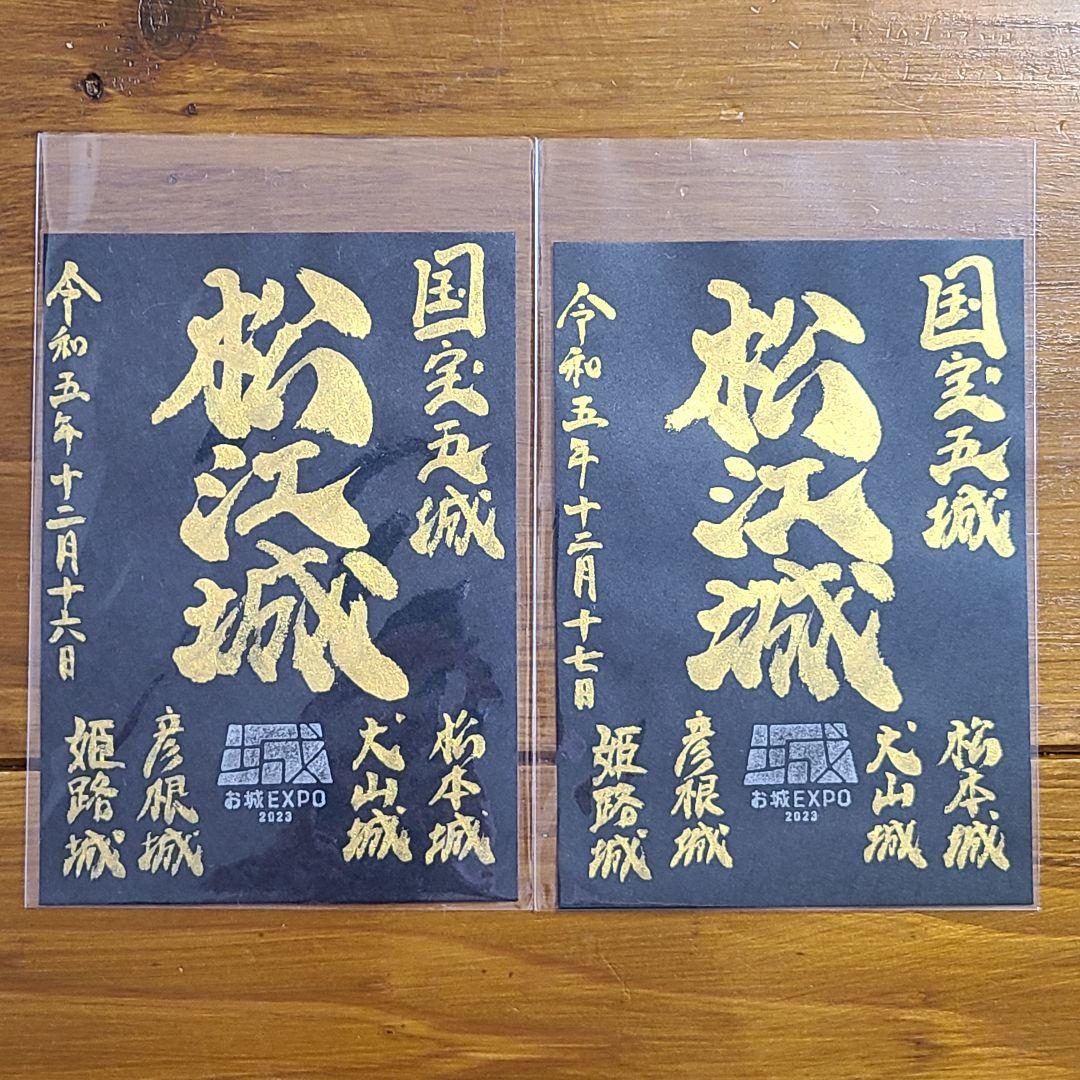 国宝五城
松江城
令和五年十二月十六日
松本城
犬山城
城
お城EXPO
2023
彦根城
姫路城
国宝五城
松江城
令和五年十二月十七日
松本城
犬山城
城
お城EXPO
2023
彦根城
姫路城